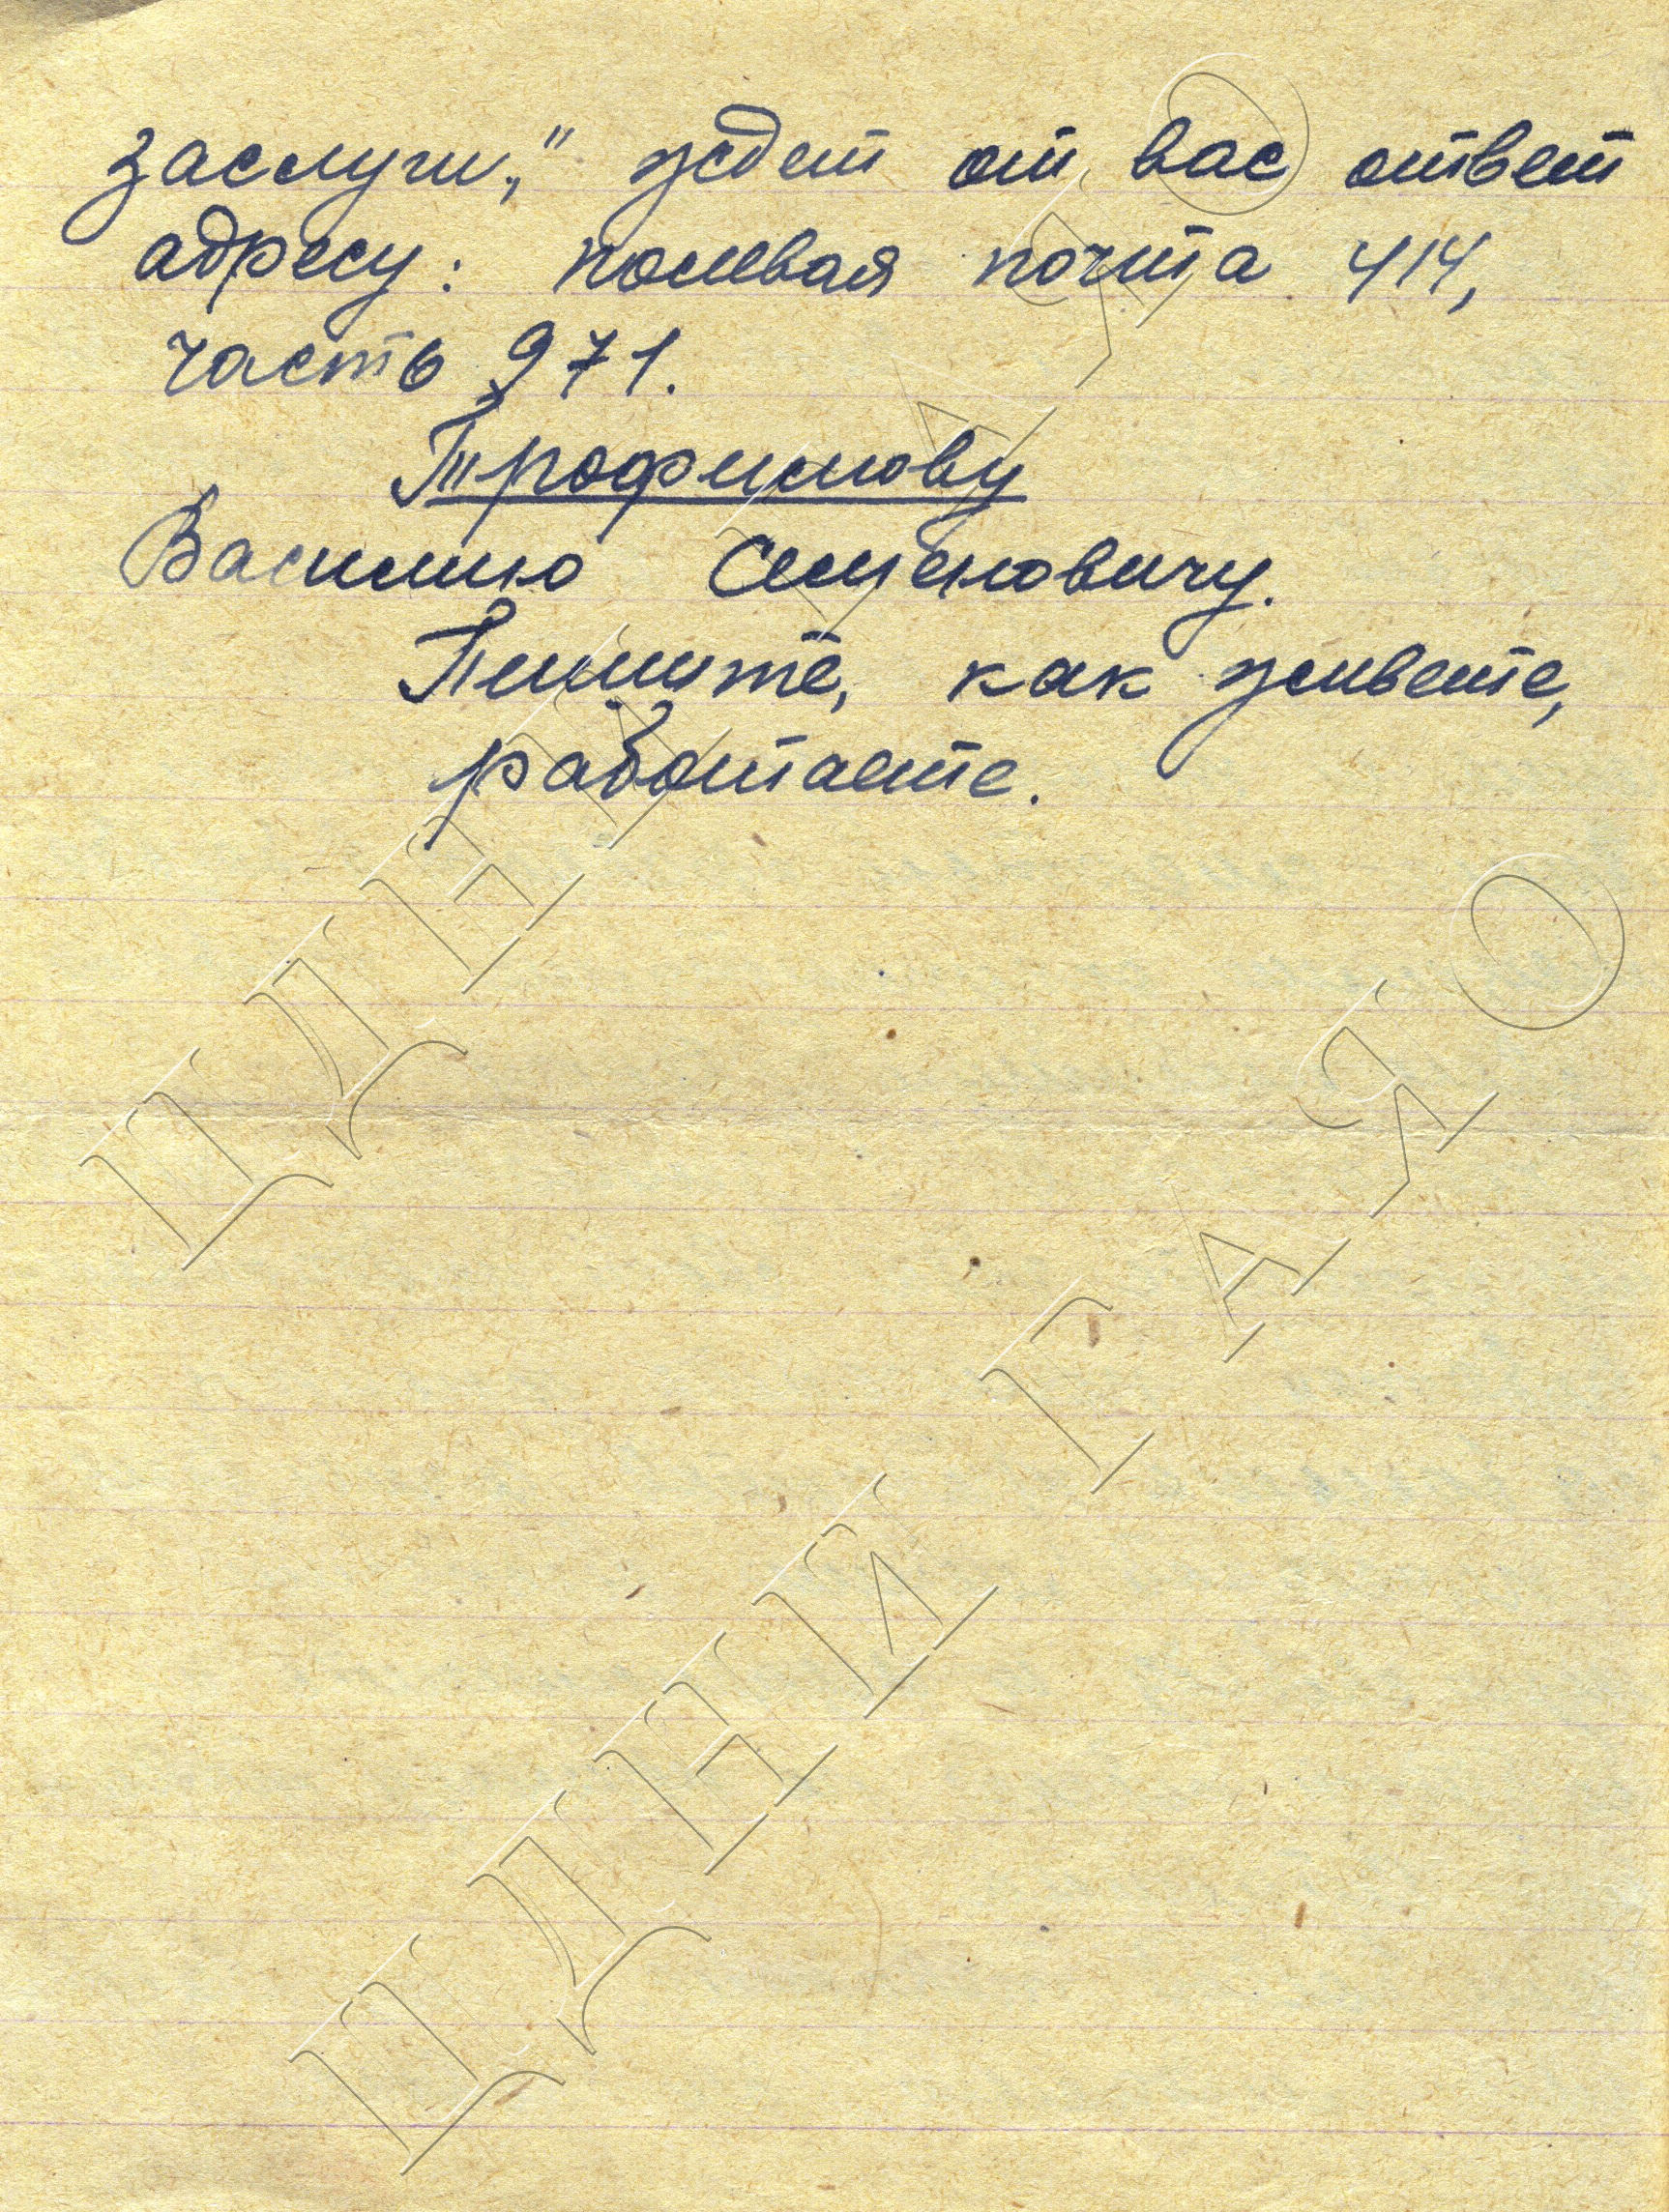 заслуги," ждет от вас ответ
адресу: полевая почта 414,
часть 971.
Трофимову
Василию Семеновичу.
Пишите, как живете,
работаете.
ЦДНИ ГАЯО
ЦДНИ ГАЯО